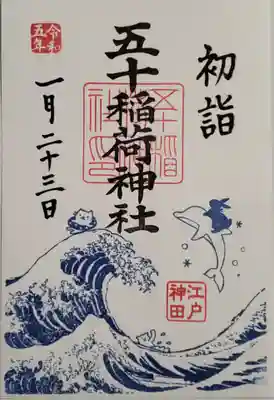 初詣
五十稲荷神社
五十稲
令和
五年
一月二十三日
江戸
神田